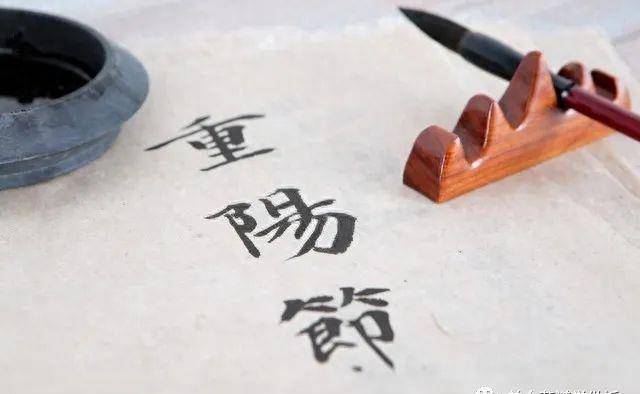 重
陽
節